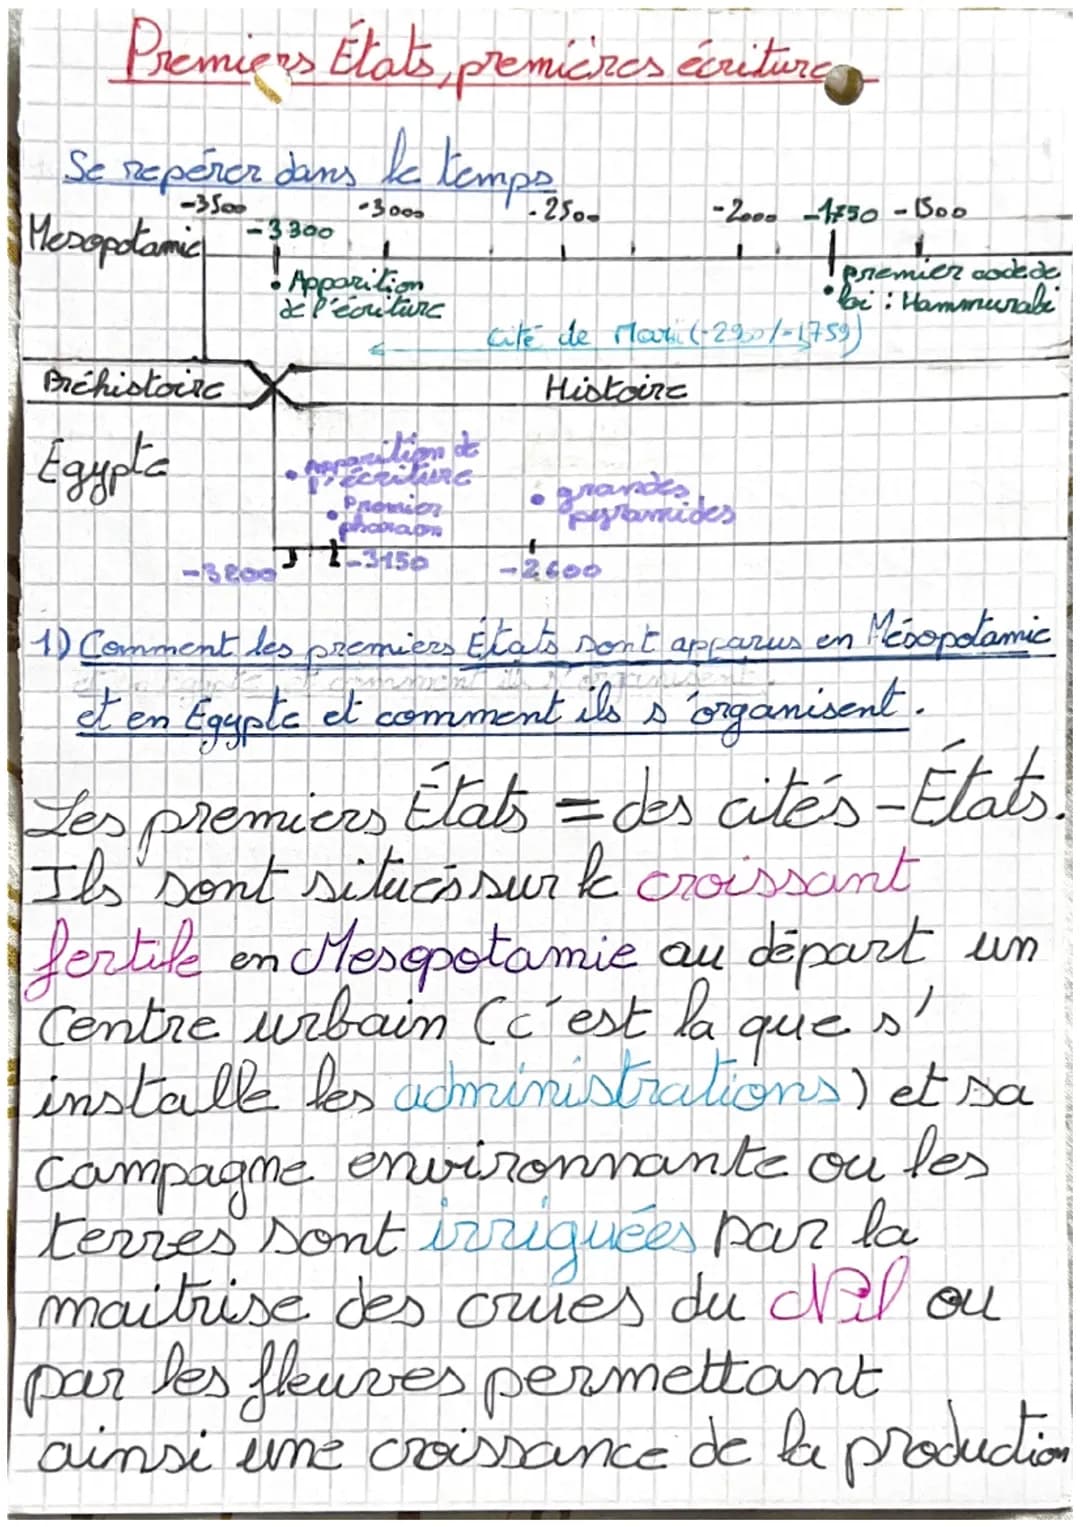 Premiers États, premières écriture
Se repérer dans le temps
-3500 -3000 -2500 -2000 -1750 -1500
Mesopotamie -3300
Apparition de l'écriture
premier code de loi : Hammurabi
cité de Mari (-2900/-1759)
Préhistoire Histoire
Egypte
apparition de l'écriture
Premier pharaon
grandes pyramides
-3200 -3150 -2600
1) Comment les premiers États sont apparus en Mésopotamie
et en Egypte et comment ils s'organisent.
Les premiers États = des cités-États.
Ils sont situés sur le croissant
fertile en Mesopotamie au départ un
Centre urbain (c'est la que s'
installe les administrations) et sa
campagne environnante ou les
terres sont irriguées par la
maitrise des crues du Nil ou
par les fleuves permettant
ainsi une croissance de la production